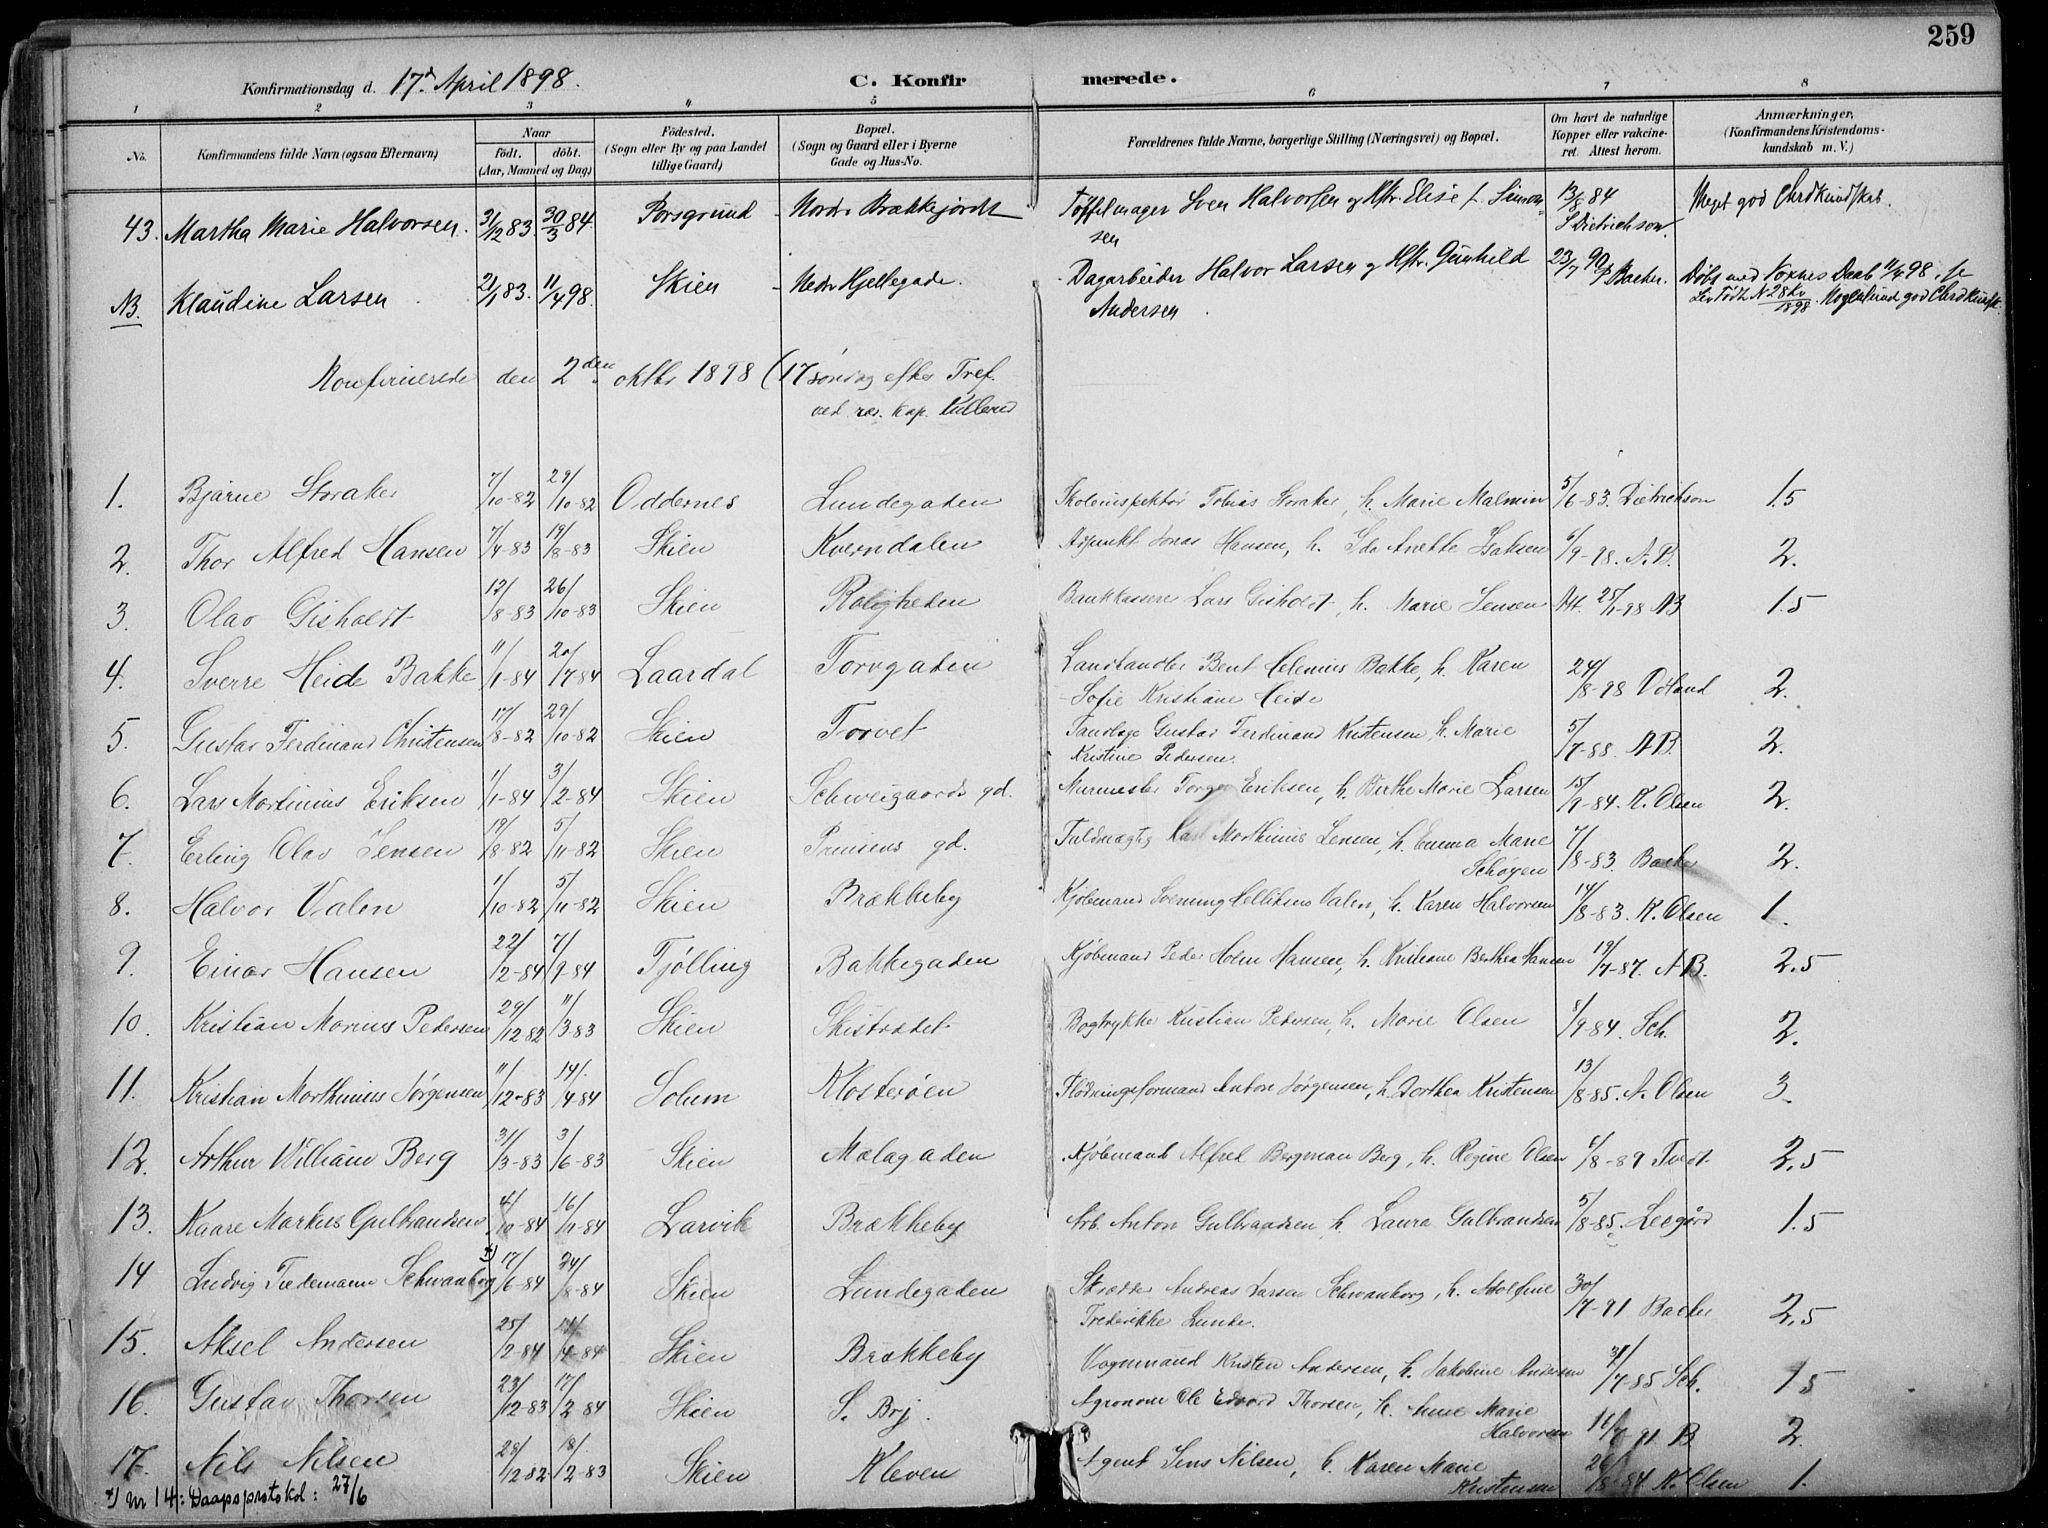 259
Konfirmationsdag d. 17d April 1898. C. Konfirmerede.
1 2 3 4 5 6 7 8
No. Konfirmandens fulde Navn (ogsaa Efternavn) Naar födt. döbt. (Aar, Maaned og Dag) Födested. (Sogn eller By og paa Landet tillige Gaard) Bopæl. (Sogn og Gaard eller i Byerne Gade og Hus-No. Forældrenes fulde Navne, borgerlige Stilling (Næringsvei) og Bopæl. Om havt de naturlige Kopper eller vakcineret. Attest herom. Anmærkninger, (Konfirmandens Kristendomskundskab m. V.)
43. Martha Marie Halvorsen. 31/12 83. 30/3 84. Porsgrund - Nedre Brækkejordet Töffelmager Sven Halvorsen og Hstr. Elise f. Simonsen 13/8 84 S Dietrichson. Meget god Chrdkundskab.
NB. Klaudine Larsen 21/1 83. 11/4 98. Skien - Nedre Hjellegade. - Dagarbeider Halvor Larsen og Hstr. Gunhild Andersen 23/7 90 Backer. Döbt med Voxnes Daab 11/4 98. se Lev. Födte N 28 Kv 1898. Nogenlund god Chrdkundsk.
Konfirmerede den 2den oktbr 1898 (17 söndag efter Tref.
ved res. kap. Kullerud
1. Bjarne Storaker 7/10-82 29/10-82 Oddernes Lundegaden Skoleinspektör Tobias Storaker, h. Marie Malmin 5/6-83. Dietrichson 1.5
2. Thor Alfred Hansen 7/4-83 19/8-83 Skien Kverndalen Jonas Hansen, h. Ida Anette Isaksen 6/9-98. A.B. 2.
3. Olav Gisholdt 12/8-83 26/10-83 Skien Roligheden Bankkasserer Lars Gisholdt, h. Marie Jensen Att. 25/1-98 AB 1.5
4. Sverre Heide Bakke 11/1-84 20/7-84 Laardal Torvgaden Landhandler Bent Helenius Bakke, h. Karen Sofie Kristiane Heide 24/8-98 Ödland 2.
5. Gustav Ferdinand Christensen 17/8-82 29/10-82 Skien Torvet Tandlæge Gustav Ferdinand Kristensen, h. Marie Kristine Pedersen. 5/7-88. AB. 2.
6. Lars Martinius Eriksen 1/1-84 3/2-84 Skien Schweigaards gd. Murmester Torger Eriksen, h. Berthe Marie Larsen 15/9-84. K. Olsen 2.
7. Erling Olav Jensen 19/8-82 5/11-82 Skien Prinsens gd. Fuldmægtig Karl Morthinius Jensen, h. Emma Marie Schøyen 7/8-83. Backer 2.
8. Halvor Valen 1/10-82 5/11-82 Skien Brækkeby Kjöbmand Svenung Helliksen Valen, h. Karen Halvorsen 14/8-83. K. Olsen 1.
9. Einar Hansen 22/2-84 7/9-84 Tjølling Bakkegaden Kjöbmand Peder Holm Hansen, h. Kristiane Berthea Hansen 19/7-87. AB. 2.5
10. Kristian Marius Pedersen 29/12 82 11/3-83 Skien Skistrædet Bogtrykker Kristian Pedersen, h. Marie Olsen 8/9-84. Sch. 2.
11. Kristian Morthinius Jørgensen 11/12-83 14/4-84 Solum Klosterøen Flødningsformand Anton Jørgensen, h. Dorthea Kristensen 13/8-85. A. Olsen 3.
12. Arthur William Berg 31/3-83 3/6-83 Skien Mælagaden Kjöbmand Alfred Bergman Berg, h. Regine Olsen 6/8-89 Tvedt 2,5
13. Kaare Markus Gulbrandsen 4/10-84 16/11-84 Larvik Brækkeby Arb. Anton Gulbrandsen h. Laura Gulbrandsen 5/8-85. Leegård 1.5
14 Ludvig Tiedemann Schwanborg x) 17/6-84 24/8-84 Skien Lundegaden Skrædder Andreas Larsen Schwanborg, h. Adolfine Frederikke Lunde. 30/7-91 Backer 2,5
15. Aksel Andersen 25/2-84 /4-84 Skien Brækkeby Vognmand Kristen Andersen, h. Jakobine Andersen 31/7-85 Sch. 15
16. Gustav Thorsen 23/12-83 17/2-84 Skien S. Brj. Agronom Ole Edvard Thorsen, h. Anne Marie Halvorsen 91 B 2.
17. Nils Nilsen 28/12-82 18/2-83 Skien Kleven Agent Jens Nilsen, h. Karen Marie Kristensen 26/8-84 K. Olsen 1.
x) Nr 14: Daapsprotokol: 27/6